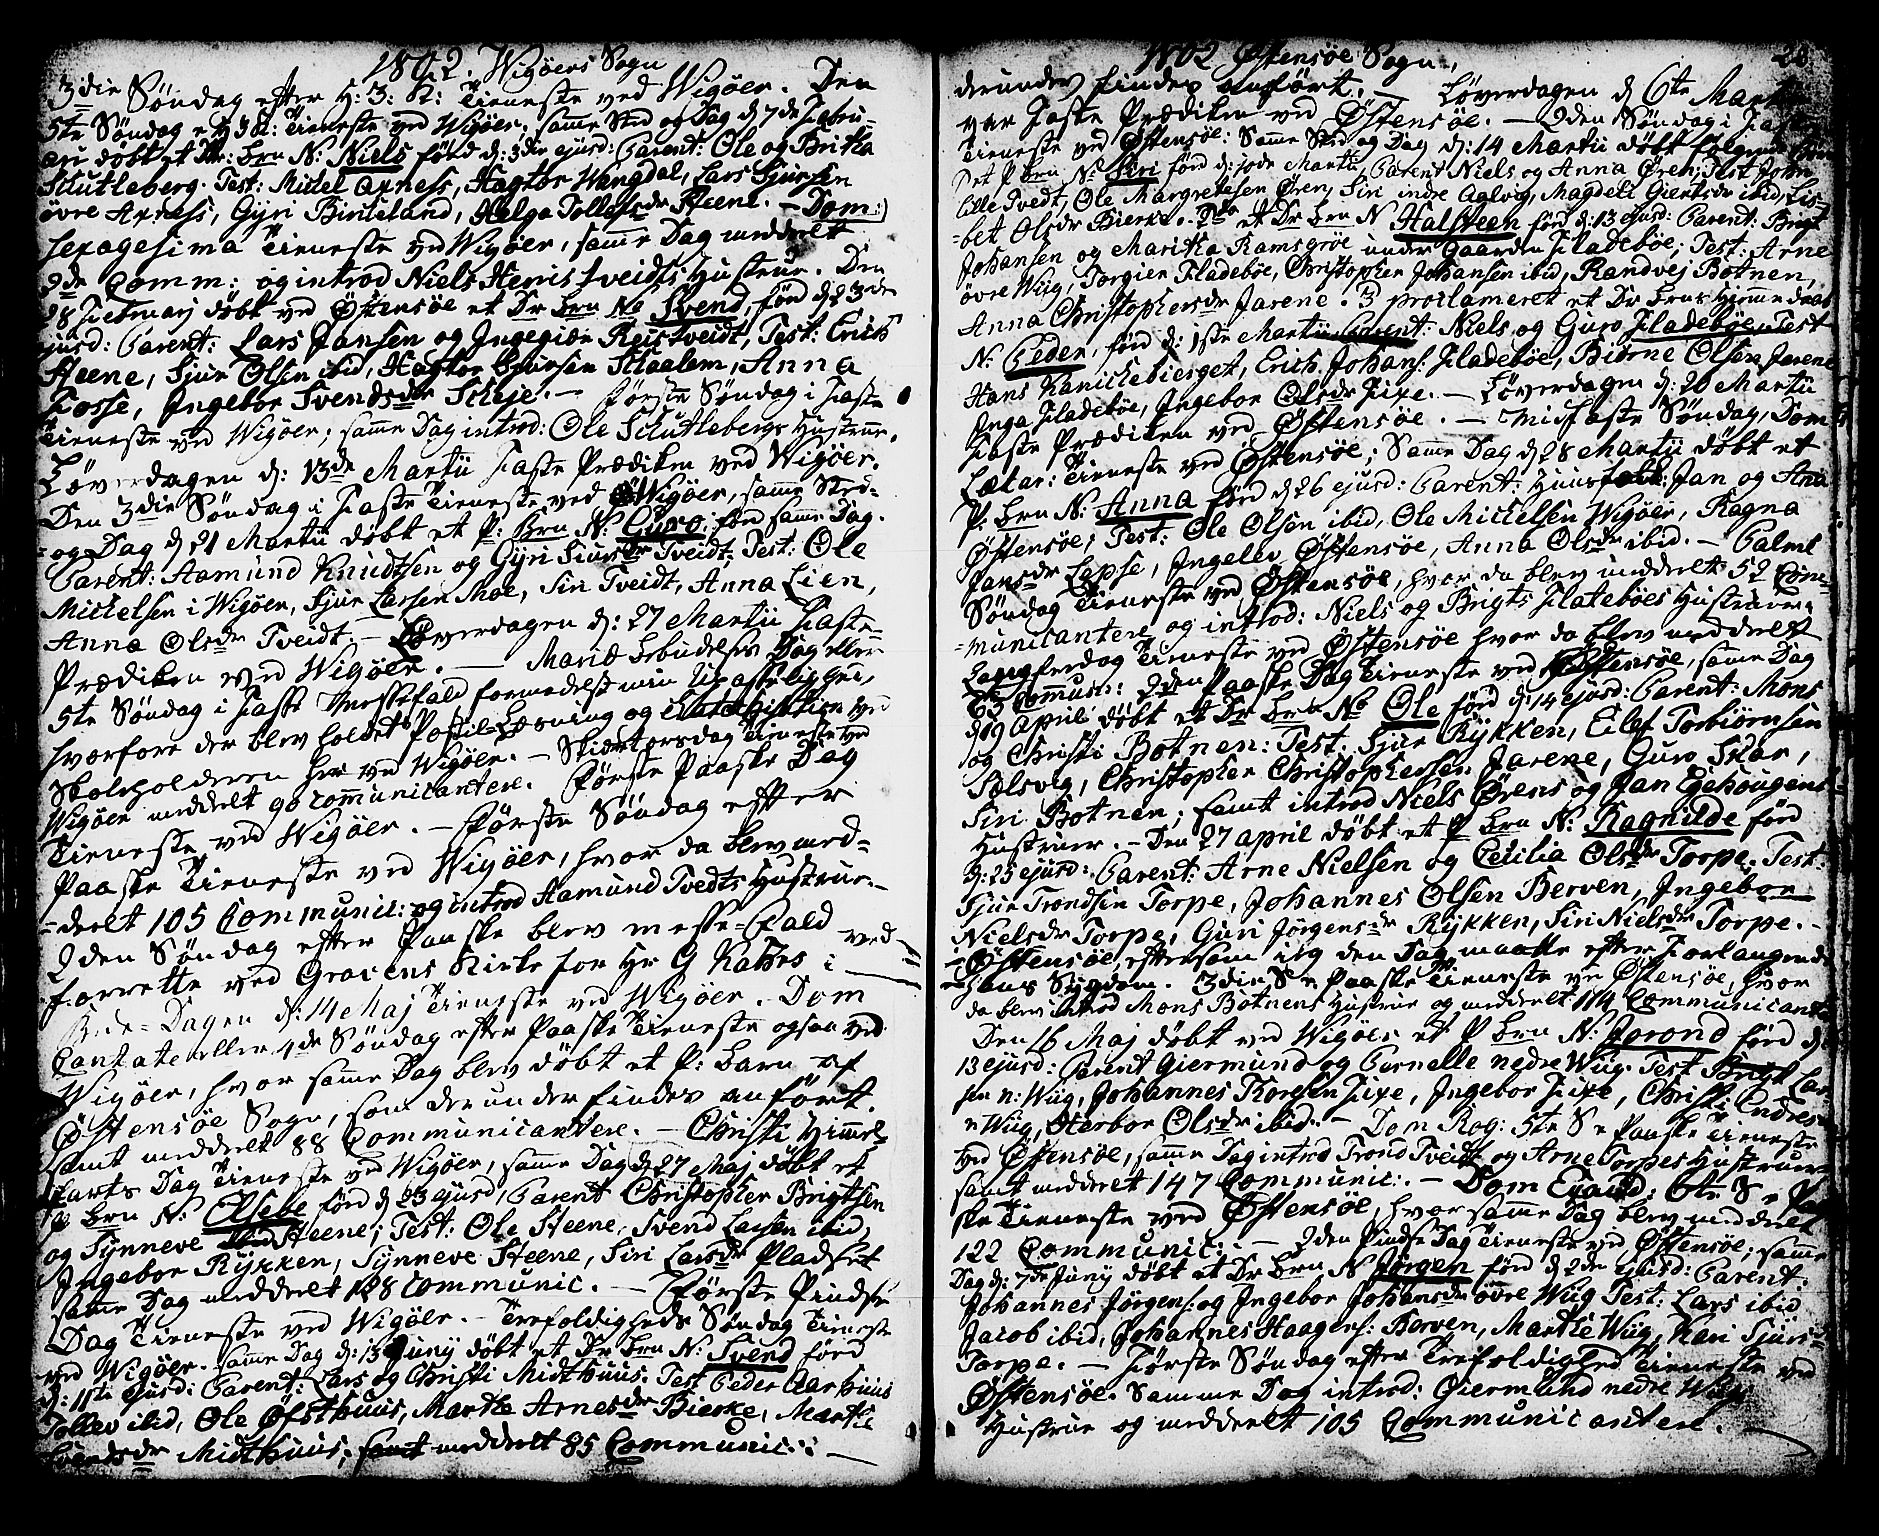 1802. Wigøers Sogn
3die Søndag efter H: 3: K: Tieneste ved Wigøer. Den
5te Søndag e H 3 K: Tieneste ved Wigøer. samme Sted og Dag d 7de Febru-
arii døbt et Dr: Brn N: Niels fød d: 3die ejusd: Parent: Ole og Britha
Skutleberg. Test: Mickel Axness, Hagtor Wangdal, Lars Sjursen
øvre Axness, Gyri Birkeland, Helga Tollefsdr Steene. - Dom:
sexagesima Tieneste ved Wigøer, samme Dag meddelt
9de Comm: og introd Niels Henrik Tveidts Hustrue. Den
28 Februarj døbt ved Østensøe et Dr Brn No Svend, fød d 23de
ejusd: Parent: Lars Jansen og Ingegier Reistveidt, Test: Erich
Steene, Sjur Olsen ibid, Hagtor Sjursen Skaalem, Anna
Fosse, Ingebor Svendsdr Scheje. - Første Søndag i Faste
Tieneste ved Wigøer; samme Dag introd: Ole Skutlebergs Hustrue.
Løverdagen d: 13de Martii Faste Prædiken ved Wigøer.
Den 3die Søndag i Faste Tieneste ved Wigøer, samme Sted-
og Dag d 21 Martii døbt et P: Brn N: Guro: fød samme Dag.
Parent: Aamund Knudtsen og Gyri Siursdr Tveidt. Test: Ole
Mickelsen i Wigøer, Sjur Larsen Moe, Siri Tveidt, Anna Lien,
Anna Olsdr Tveidt. - Løverdagen d: 27 Martii Faste-
Prædiken ved Wigøer. - Mariæ Bebudelses Dag eller
5te Søndag i Faste Messefald formedelst min Upasselighed,
hvorfore der blev holdet Postil-Læsning og Catechisation ved
Skoleholderen her ved Wigøer. - Skiertorsdag Tieneste ved
Wigøer meddelt 90 Communicantere. Første Paaske Dag
Tieneste ved Wigøer. - Første Søndag efter
Paaske Tieneste ved Wigøer, hvor da blev med-
-deelt 105 Communic: og introd Aamund Tvedts Hustrue. -
2den Søndag efter Paaske blev messe-Fald ved
forrette ved Gravens Kirke for Hr G Kahrs i
Bede-Dagen d: 14 Maj Tieneste ved Wigøer. Dom
Cantate eller 4de Søndag efter Paaske Tieneste ogsaa ved
Wigøer, hvor samme Dag blev døbt et P: Barn af
Østensøe Sogn, som derunder findes anført.
samt meddelt 88 Communicantere. - Christi Himmel-
farts Dag Tieneste ved Wigøer, samme Dag d 27 Maj døbt et
P Brn N: Elsebe fød d 23 ejusd, Parent Christopher Brigtsen
og Synneve Steene; Test: Ole Steene, Svend Larsen ibid,
Ingebor Rykken, Synneve Steene, Siri Larsdr Pladset
samme Dag meddelt 128 Communic. - Første Pindse
Dag Tieneste ved Wigøer. - Trefoldigheds Søndag Tieneste
ved Wigøer. samme Dag d: 13 Junij døbt et Dr Brn N: Svend fød
d: 11te ejusd: Parent: Lars og Christi Midthuus. Test Peder Aarhuus
Tollev ibid, Ole Øfsthuus, Marthe Arnesdr Bierke, Marthe
Svendsdr Midthuus; samt meddelt 85 Communic: -
1802 Østensøe Sogn, 20
derunder findes anført. - Løverdagen d 6te Martii
var Faste Prædiken ved Østensøe. - 2den Søndag i Faste
Tieneste ved Østensøe: Samme Sted og Dag d: 14 Martii døbt følgende
Det P Brn N: Siri fød d: 10de Martii, Parent Niels og Anna Øren; Test John
lille Tvedt, Ole Margretesen Øren, Siri indre Aalvig, Magdeli Giertsdr ibid, Lis-
-bet Olsdr Bierke. 2de et Dr Brn N Halsteen fød d: 13 ejusd: Parent: Brigt
Johansen og Maritha Ramsgrøe under Gaarden Fladebøe; Test: Arne
øvre Wiig, Torgier Fladebøe, Christopher Johansen ibid, Randvej Botnen,
Anna Christophersdr Jarene. 3 proclameret et Dr Brns Hjemme daab
N: Peder, fød d: 1ste Martii: Parent: Niels og Guro Fladebøe. Test
Hans Kanickebierget, Erich Johans: Fladebøe, Biørne Olsen Jarene
Inga Fladebøe, Ingebor Olsdr Fixe. - Løverdagen d: 20 Martii
Faste Prædiken ved Østensøe. - Midfaste Søndag, Dom
Lætar: Tieneste ved Østensøe; Samme Dag d 28 Martii døbt et
P: Brn N: Anna fød d 26 ejusd: Parent: Huusfolk: Jan og Ana
Østensøe; Test: Ole Olsen ibid, Ole Mickelsen Wigøer, Ragna
Jansdr Lepse, Ingelev Østensøe, Anna Olsdr ibid. - Palme
Søndag Tieneste ved Østensøe, hvor da blev meddelt 52 Com-
-municantere og introd: Niels og Brigts Flatebøes Hustruer.
Langfredag Tieneste ved Østensøe hvor da blev meddelt
63 Comun: 2den Paaske Dag Tieneste ved Østensøe, samme Dag
d 19 April døbt et Dr Brn No Ole fød d: 14 ejusd: Parent: Mons
og Christi Botnen: Test: Sjur Rykken, Eilef Torbiørnsen
Sælsvig, Christopher Christophersen Jarene, Guro Skar,
Siri Botnen; samt introd Niels Ørens og Jan Egehougens
Hustruer. - Den 27 april døbt et P Brn N: Ragnilde fød
d: 25 ejusd: Parent: Arne Nielsen og Cecilia Olsdr Torpe. Test:
Sjur Trondsen Torpe, Johannes Olsen Berven, Ingebor
Nielsdr Torpe, Guri Jørgensdr Rykken, Siri Nielsdr Torpe. -
Østensøe eftersom ieg den Dag maatte efter Forlangende
hans Sygdom. 3die S e Paaske Tieneste ved Østensøe, hvor
da blev introd Mons Botnens Hustrue og meddelt 114 Communicantere
Den 16 Maj døbt ved Wigøer et P Brn N: Jorond fød d
13 ejusd: Parent Giermund og Pernelle nedre Wiig. Test Brigt Lar-
sen n: Wiig, Johannes Thorsen Fixe, Ingebor Fixe, Christi Endres
n Wiig, Herbor Olsdr ibid. - Dom Rog: 5te S e Paaske Tieneste
ved Østensøe, samme Dag introd Trond Tveidt og Arne Torpes Hustruer
samt meddelt 147 Communic:. - Dom Exaud: 6te S e Paa-
ske Tieneste ved Østensøe, hvor samme Dag blev meddelt
122 Communic:. - 2den Pindse Dag Tieneste ved Østensøe; samme
Dag d: 7de Junij døbt et Dr Brn N Jørgen fød d 2de ejusd: Parent:
Johannes Jørgens: og Ingebor Johansdr øvre Wiig Test: Lars ibid
Jacob ibid, Johannes Haagens: Berven, Marthe Wiig, Kari Sjurs-
Torpe. - Første Søndag efter Trefoldighed Tieneste ved
Østensøe. Samme Dag introd: Giermund nedre Wiigs
Hustrue og meddelt 105 Communicantere. -